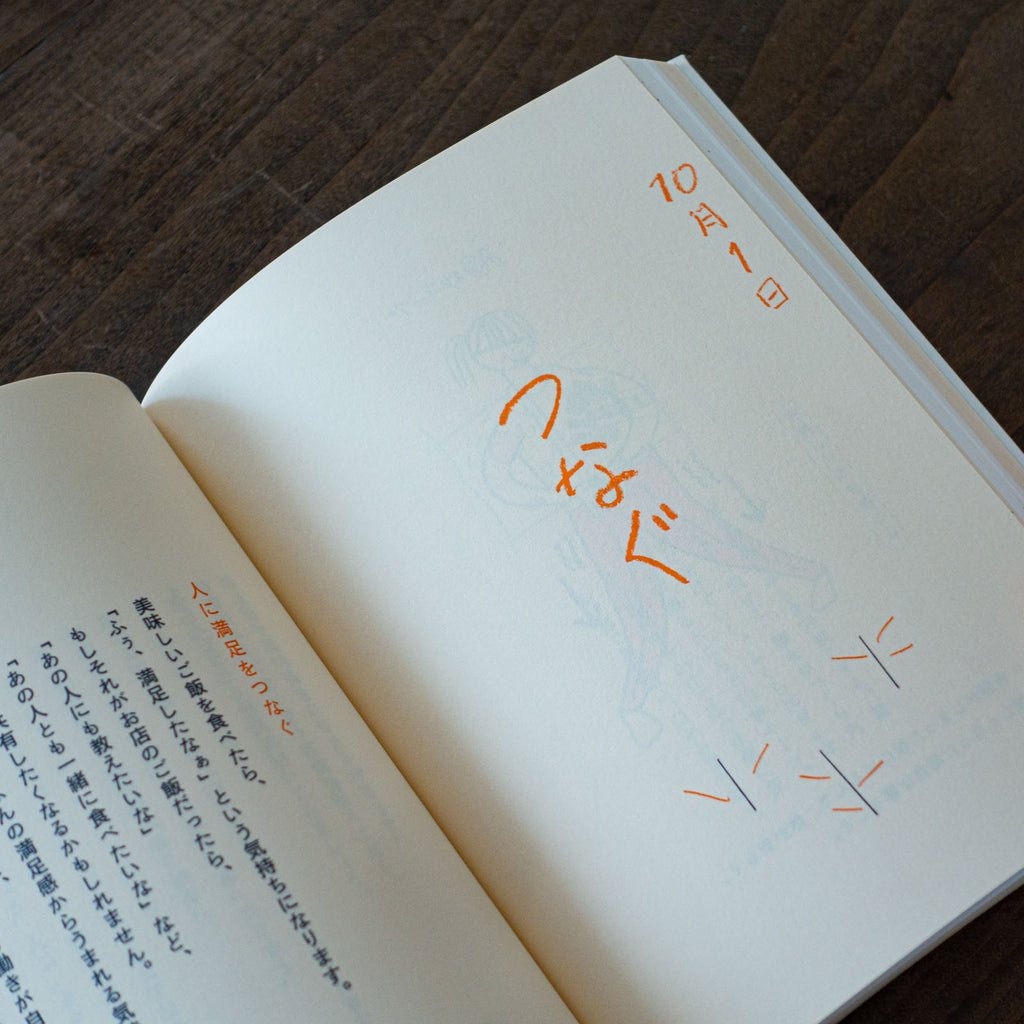 10月1日
つなぐ
人に満足をつなぐ
美味しいご飯を食べたら、
「ふぅ、満足したなぁ」という気持ちになります。
もしそれがお店のご飯だったら、
「あの人にも教えたいな」
「あの人とも一緒に食べたいな」など、
共有したくなるかもしれません。
の満足感からうまれる気
働きが自